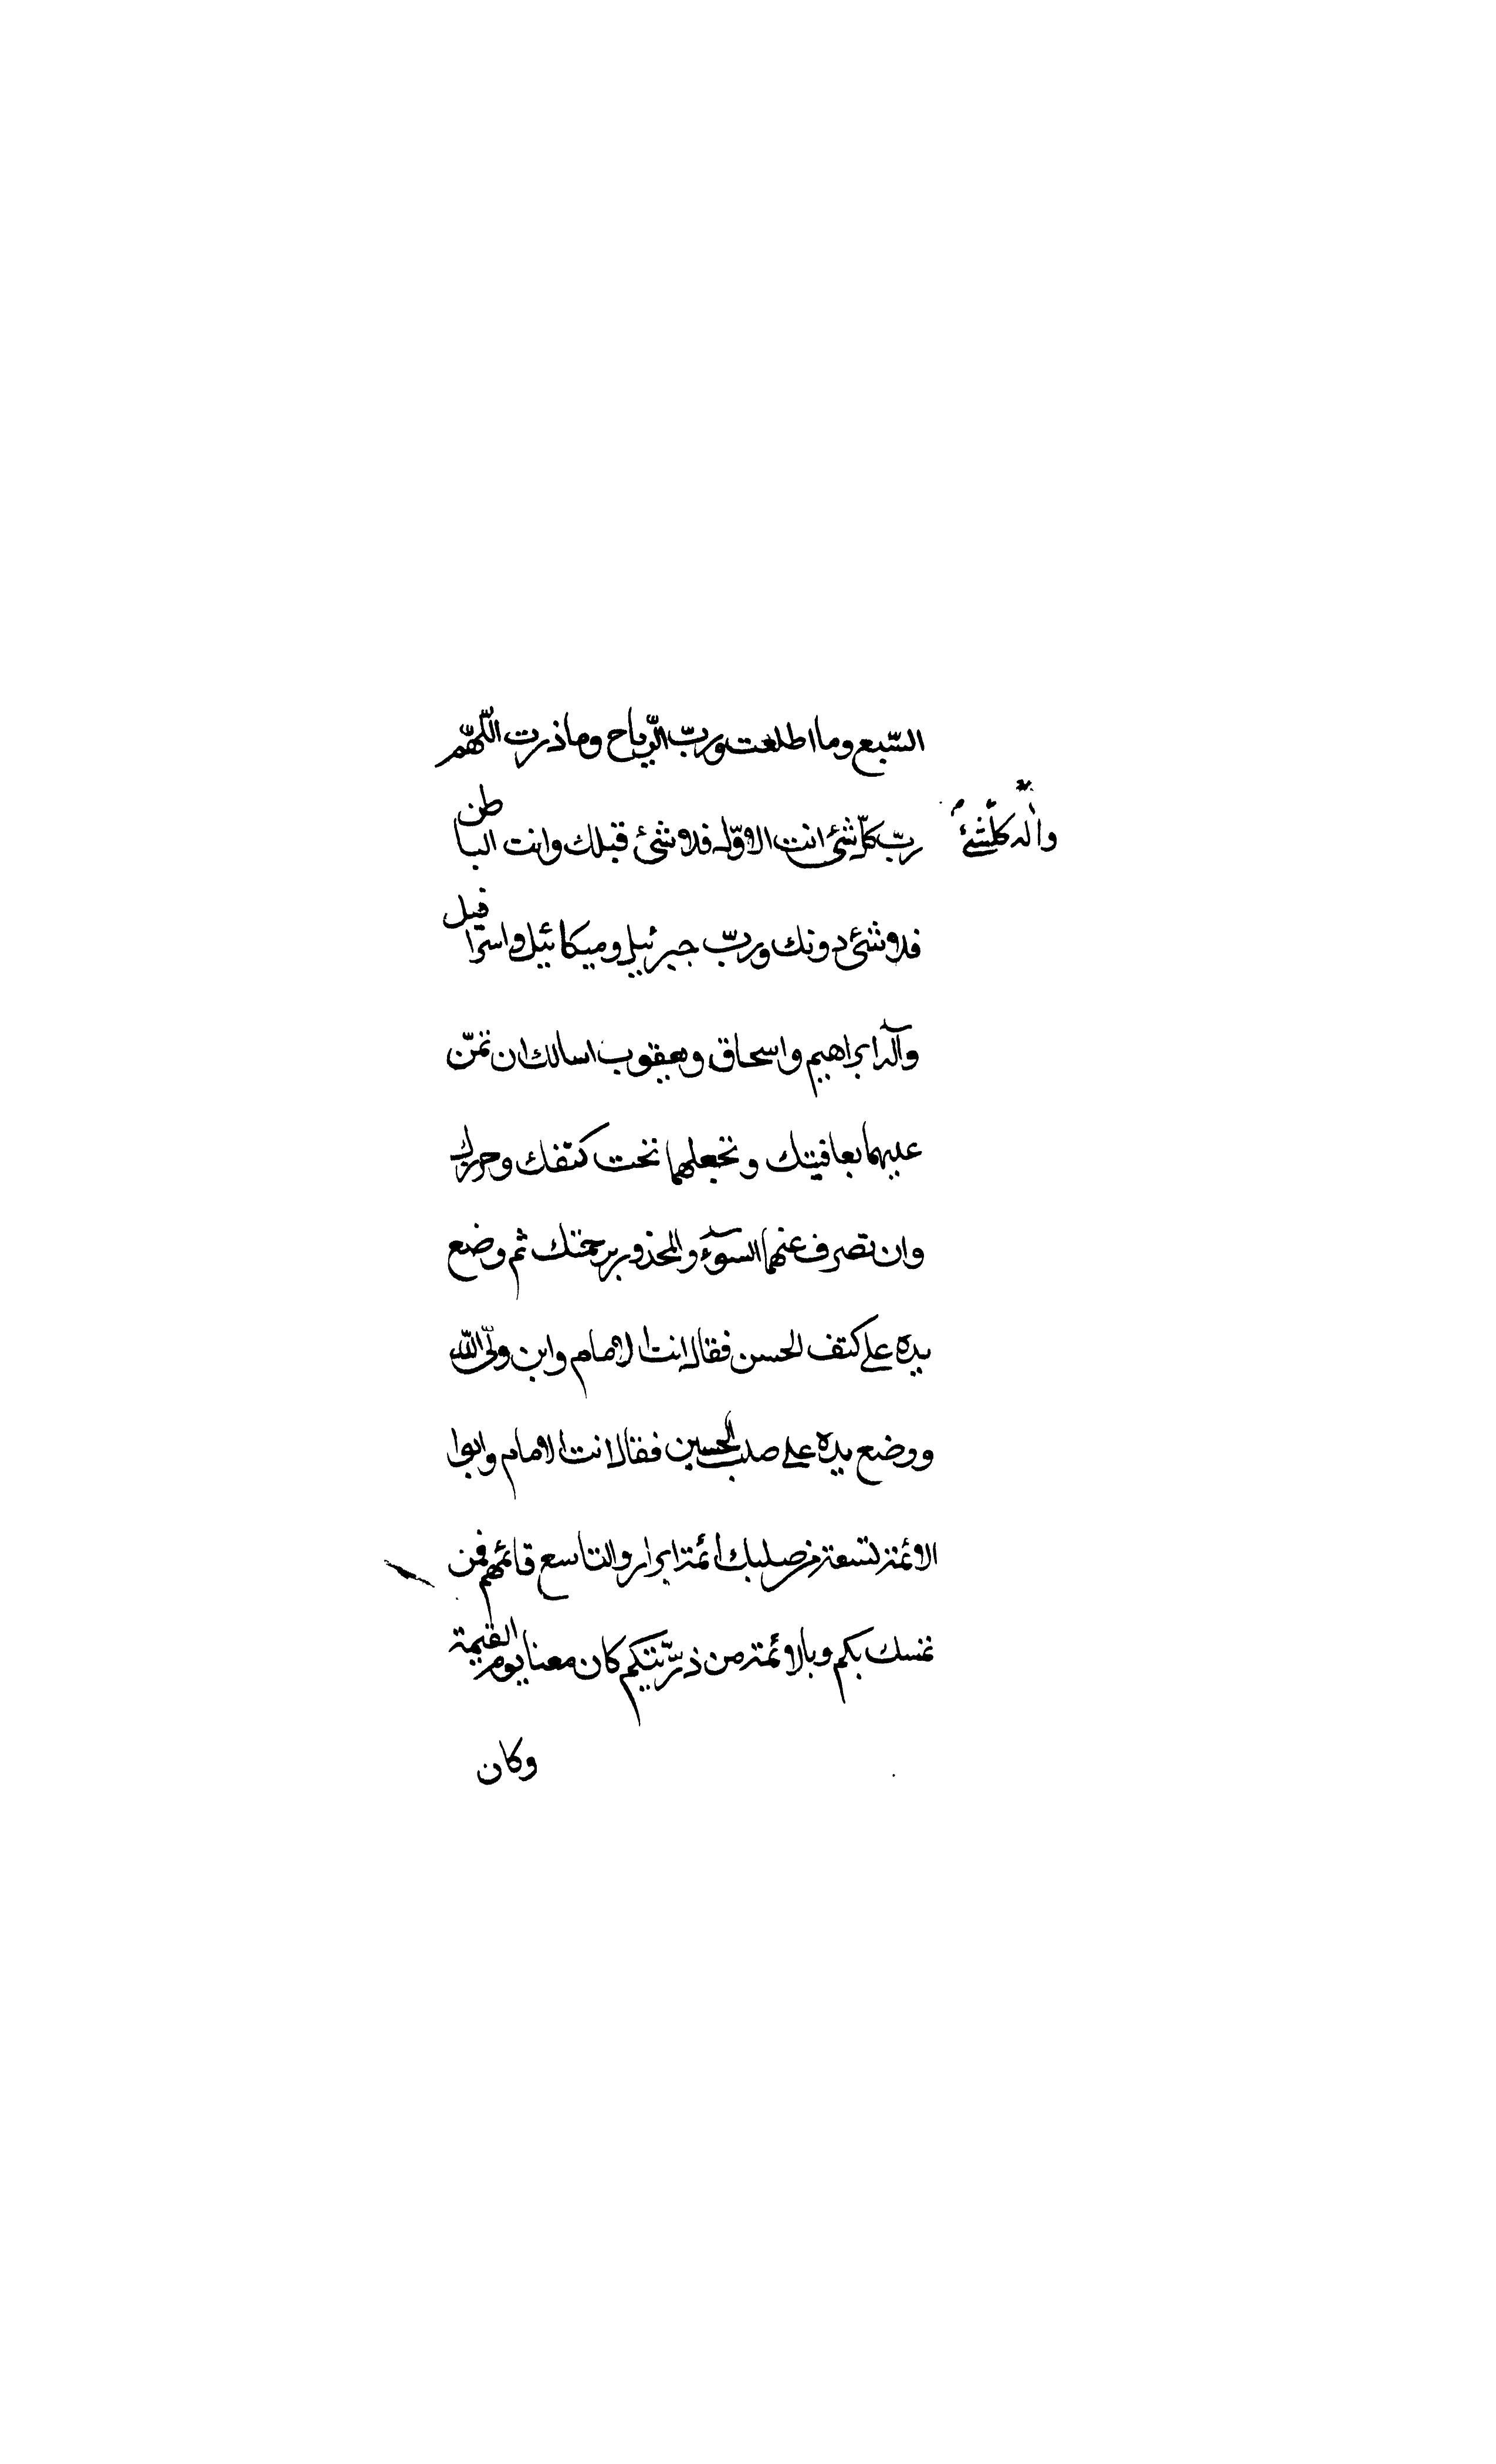 السّبع وما اطلعت وربّ الرّياح وما ذرت اللّهمّ
ربّ كلّ شئ انت الاوّل فلا شئ قبلك وانت الباطن
واله كلّشئ
فلا شئ دونك وربّ جبرئيل وميكائيل واسرافيل
وآله ابراهيم واسحاق ويعقوب اسالك ان تمنّ
عليهما بعافيتك وتجعلهما تحت كنفك وحرزك
وان تصرف عنهما السوٓء والمحذور برحمتك ثم وضع
يده على كتف الحسن فقال انت الامام وابن وليّ اللّه
ووضع يده على صلب الحسين فقال انت الامام وابوا
الائمة لتسعة من صلبك ائمة ابرار والتاسع قائمهم فمن
تمسك بكم وبالائمة من ذرّيتكم كان معنا يوم القيمة
وكان